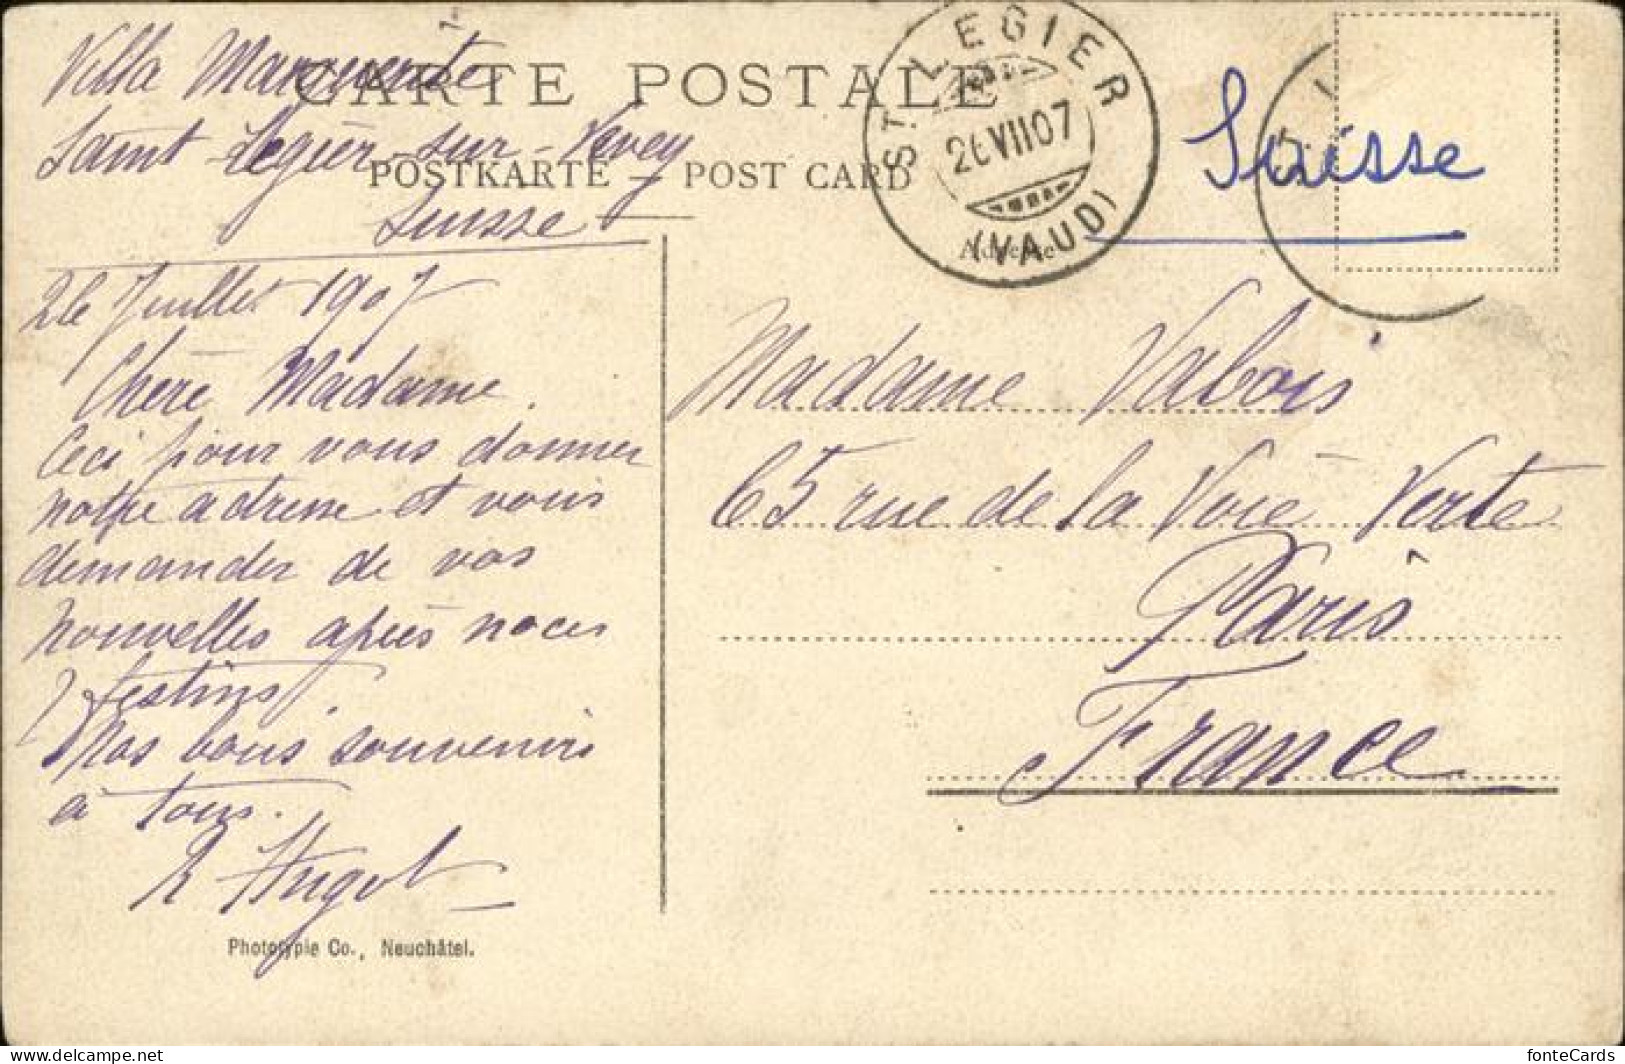 Villa Marguerite
CARTE POSTALE
Saint-Légier-sur-Vevey
POSTKARTE – POST CARD
Suisse
ST LEGIER
26 VII 07
(VAUD)
Suisse
Adresse
26 Juillet 1907
Chère Madame.
Ceci pour vous donner
notre adresse et vous
demander de vos
nouvelles après noces
& festins.
Nos bons souvenirs
à tous.
Hugot
Madame Valois
65 rue de la Voie Verte
Paris
France
Phototypie Co., Neuchâtel.
fonteCards